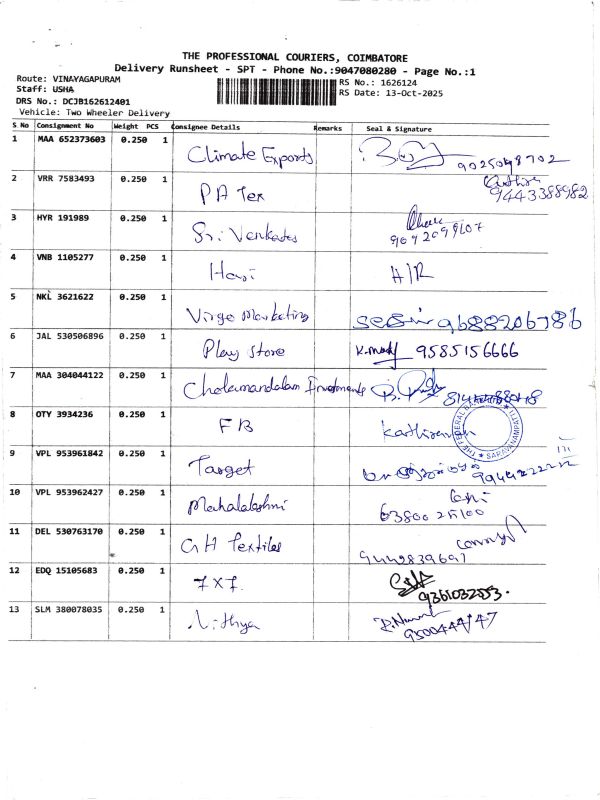 THE PROFESSIONAL COURIERS, COIMBATORE
Delivery Runsheet - SPT - Phone No.:9047080280 - Page No.:1
Route: VINAYAGAPURAM
RS No.: 1626124
Staff: USHA
RS Date: 13-Oct-2025
DRS No.: DCJB162612401
Vehicle: Two Wheeler Delivery
S No Consignment No Weight PCS Consignee Details Remarks Seal & Signature
1 MAA 652373603 0.250 1 Climate Exports
2 VRR 7583493 0.250 1 PA Tex 9443388982
3 HYR 191989 0.250 1 Sri Venkates
4 VNB 1105277 0.250 1 Hari H/R
5 NKL 3621622 0.250 1 Virgo Marketing 9688206786
6 JAL 530506896 0.250 1 Play Store 9585156666
7 MAA 304044122 0.250 1 Cholamandalam Investments
8 OTY 3934236 0.250 1 FB
THE FEDERAL SARAVANAMPATTI
9 VPL 953961842 0.250 1 Target
10 VPL 953962427 0.250 1 Mahalakshmi 6380025100
11 DEL 530763170 0.250 1 GH Textiles
12 EDQ 15105683 0.250 1 7X7.
13 SLM 380078035 0.250 1 Nithya